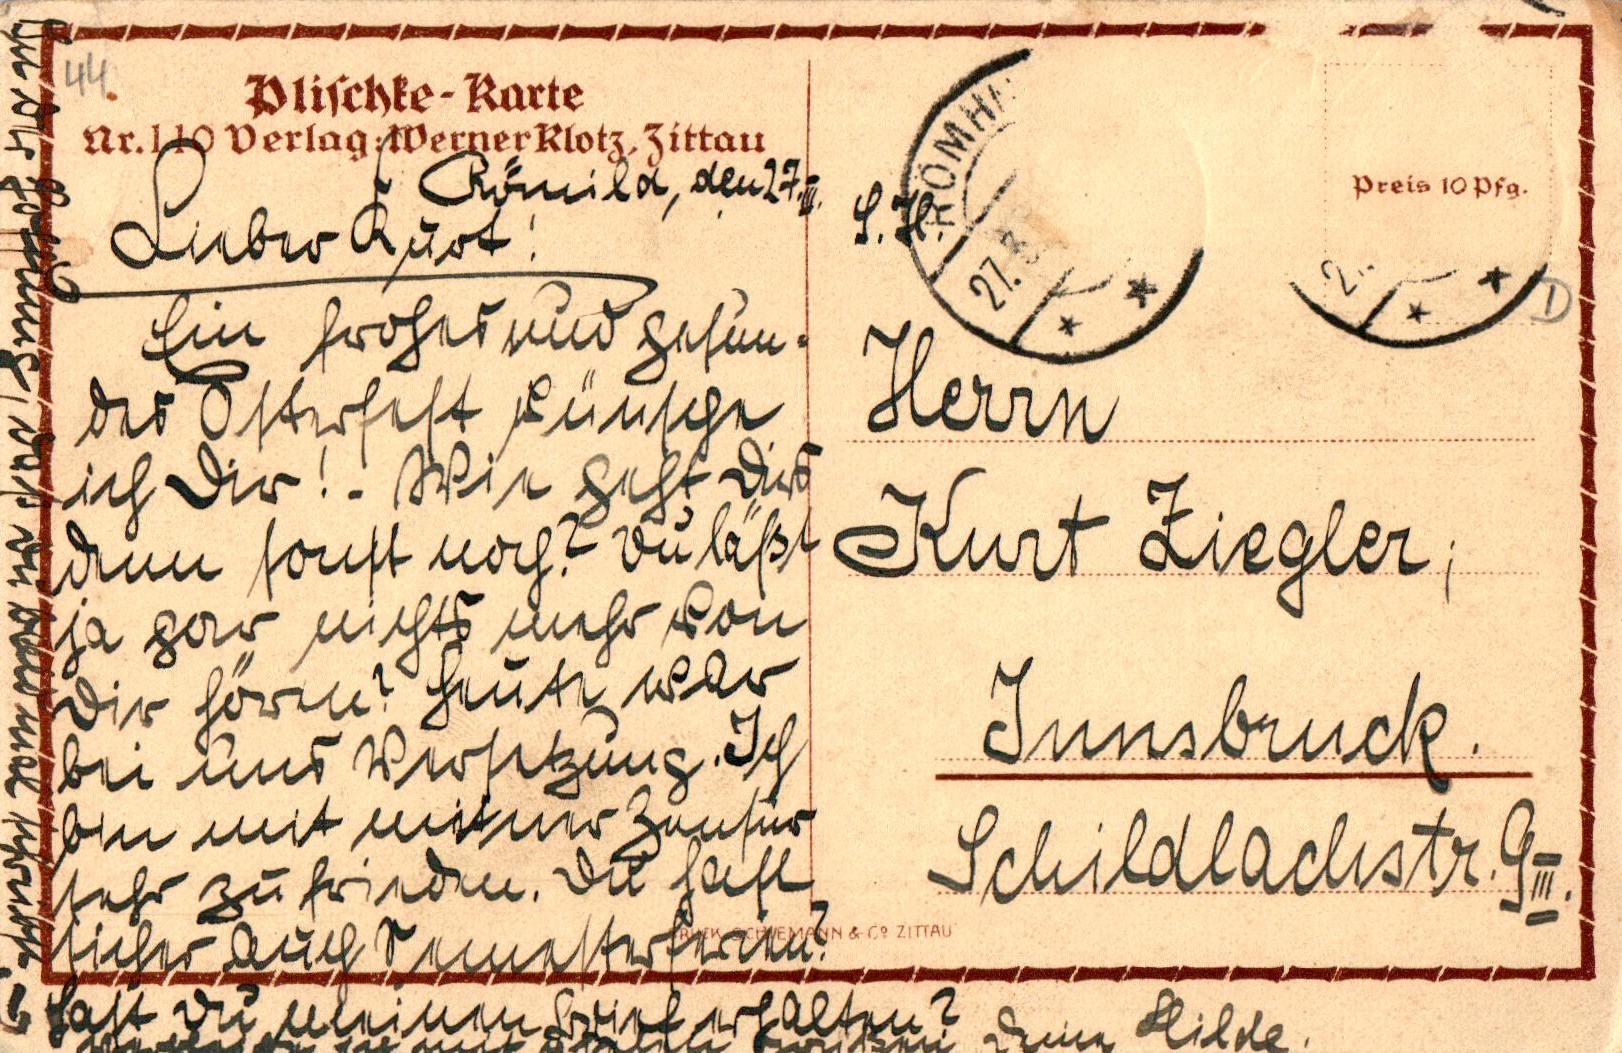 44.
Plischke-Karte
Nr. 110 Verlag: Werner Klotz, Zittau
Römhild, den 27. III.
Lieber Kurt!
Ein frohes und gesun-
des Osterfest wünsche
ich Dir! - Wie geht Dirs
denn sonst noch? Du läßt
ja gar nichts mehr von
Dir hören? Heute war
bei uns Versetzung. Ich
bin mit meiner Zensur
sehr zufrieden. Du hast
sicher auch Semesterferien?
Hast Du meinen Brief erhalten?
mit Grüßen Deine Hilde.
In der Hoffnung, daß Du bald mal schreibst
RÖMHI
27. 3
2
S. H.
Preis 10 Pfg.
D
Herrn
Kurt Ziegler,
Innsbruck.
Schildlachstr. 9 III.
DRUCK SCHIEMANN & Co ZITTAU